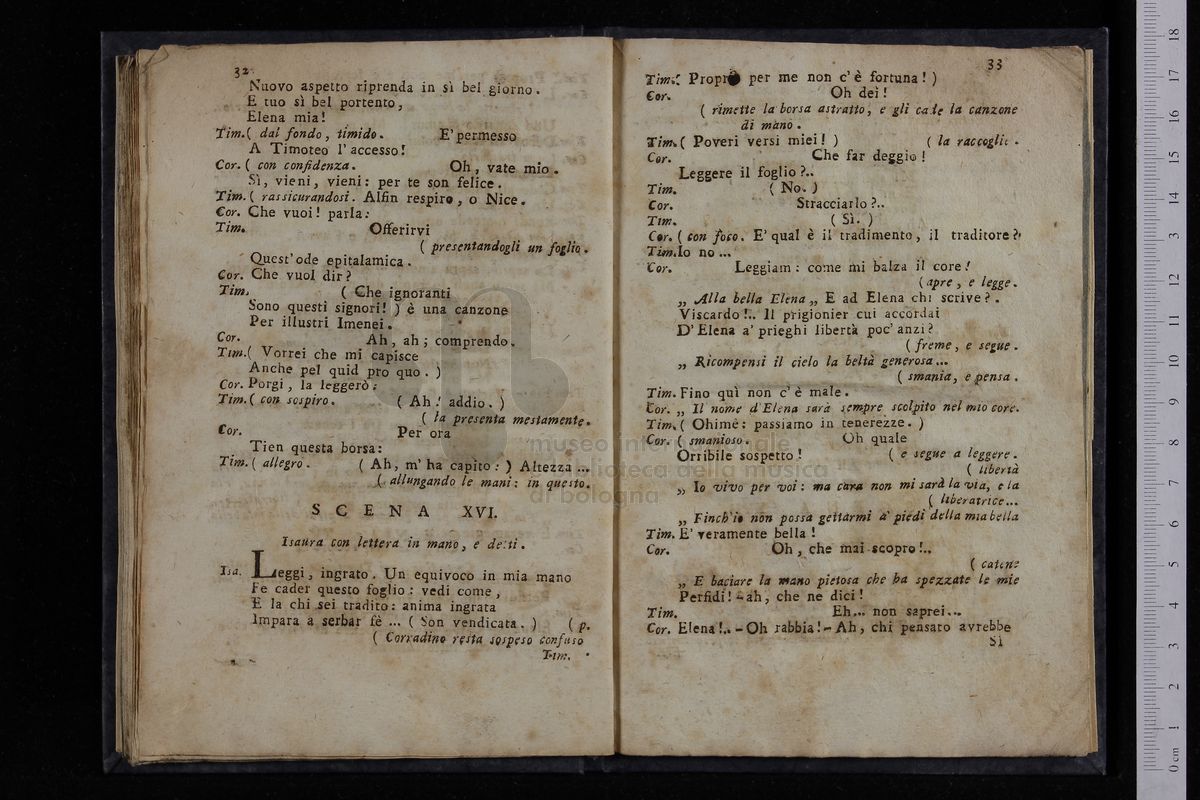 32
Nuovo aspetto riprenda in sì bel giorno.
E tuo sì bel portento,
Elena mia!
Tim. ( dal fondo, timido. E' permesso
A Timoteo l'accesso!
Cor. ( con confidenza. Oh, vate mio.
Sì, vieni, vieni: per te son felice.
Tim. ( rassicurandosi. Alfin respiro, o Nice.
Cor. Che vuoi! parla:
Tim. Offerirvi
( presentandogli un foglio.
Quest'ode epitalamica.
Cor. Che vuol dir?
Tim. ( Che ignoranti
Sono questi signori! ) è una canzone
Per illustri Imenei.
Cor. Ah, ah; comprendo.
Tim. ( Vorrei che mi capisce
Anche pel quid pro quo. )
Cor. Porgi, la leggerò:
Tim. ( con sospiro. ( Ah! addio. )
( la presenta mestamente.
Cor. Per ora
Tien questa borsa:
Tim. ( allegro. ( Ah, m'ha capito: ) Altezza ...
( allungando le mani: in questo.
SCENA XVI.
Isaura con lettera in mano, e detti.
Isa. Leggi, ingrato. Un equivoco in mia mano
Fe cader questo foglio: vedi come,
E la chi sei tradito: anima ingrata
Impara a serbar fè ... ( Son vendicata. ) ( p.
( Corradino resta sospeso confuso
Tim.
33
Tim. Proprio per me non c'è fortuna! )
Cor. Oh dei!
( rimette la borsa astratto, e gli cade la canzone
di mano.
Tim. ( Poveri versi miei! ) ( la raccoglie.
Cor. Che far deggio!
Leggere il foglio?..
Tim. ( No. )
Cor. Stracciarlo?..
Tim. ( Sì. )
Cor. ( con foco. E' qual è il tradimento, il traditore?
Tim. Io no ...
Cor. Leggiam: come mi balza il core!
( apre, e legge.
„ Alla bella Elena „ E ad Elena chi scrive?.
Viscardo!.. Il prigionier cui accordai
D'Elena a' prieghi libertà poc'anzi?
( freme, e segue.
„ Ricompensi il cielo la beltà generosa...
( smania, e pensa.
Tim. Fino quì non c'è male.
Cor. „ Il nome d'Elena sarà sempre scolpito nel mio core.
Tim. ( Ohimè: passiamo in tenerezze. )
Cor. ( smanioso. Oh quale
Orribile sospetto! ( e segue a leggere.
( libertà
„ Io vivo per voi: ma cara non mi sarà la vita, e la
( liberatrice...
„ Finch'io non possa gettarmi a' piedi della mia bella
Tim. E' veramente bella!
Cor. Oh, che mai scopro!..
( catene
„ E baciare la mano pietosa che ha spezzate le mie
Perfidi! - ah, che ne dici!
Tim. Eh... non saprei...
Cor. Elena!.. - Oh rabbia! - Ah, chi pensato avrebbe
Sì
museo internazionale
biblioteca della musica
di bologna
0 cm 1 2 3 4 5 6 7 8 9 10 11 12 13 14 15 16 17 18